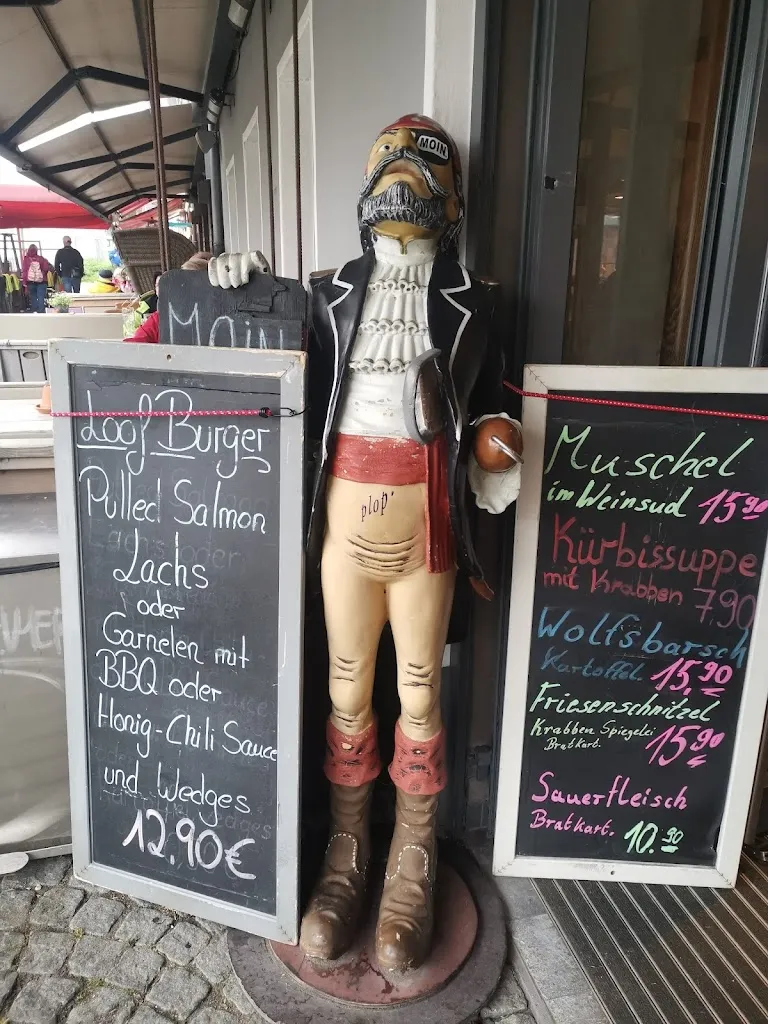 MOIN
MOIN
Loof Burger
Pulled Salmon
Lachs
oder
Garnelen mit
BBQ oder
Honig-Chili Sauce
und Wedges
12.90€
plop'
Muschel
im Weinsud 15.90
Kürbissuppe
mit Krabben 7.90
Wolfsbarsch
Kartoffel 15.90
Friesenschnitzel
Krabben Spiegelei
Bratkart. 15.90
Sauerfleisch
Bratkart. 10.90